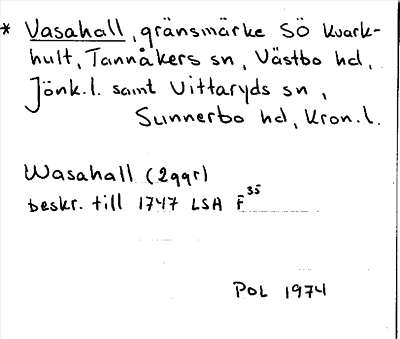 * Vasahall, gränsmärke SÖ Kvark-
hult, Tannåkers sn, Västbo hd,
Jönk.l. samt Vittaryds sn,
Sunnerbo hd, Kron.l.
Wasahall (2ggr)
beskr. till 1747 LSA F 35
POL 1974